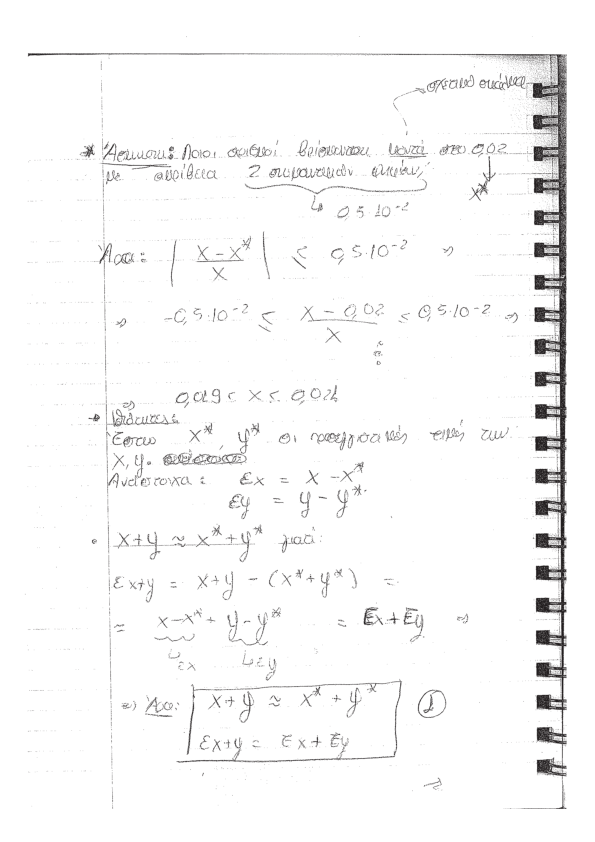 σχετικό σφάλμα
* Άσκηση: Ποιοι αριθμοί βρίσκονται κοντά στο 0,02
με ακρίβεια 2 σημαντικών ψηφίων;
x*
↳ 0,5·10⁻²
Άρα: | (x - x*) / x | ≤ 0,5·10⁻² ⇒
⇒ -0,5·10⁻² ≤ (x - 0,02) / x ≤ 0,5·10⁻² ⇒
⇒ 0,019 < x < 0,021
Ιδιότητες:
Έστω x*, y* οι πραγματικές τιμές των
x, y.
Αντίστοιχα: εx = x - x*
εy = y - y*
• x+y ≈ x* + y* γιατί:
εx+y = x+y - (x*+y*) =
= x-x* + y-y* = εx+εy ⇒
↳ εx ↳ εy
⇒ Άρα: x+y ≈ x* + y* ①
εx+y = εx + εy
⇒